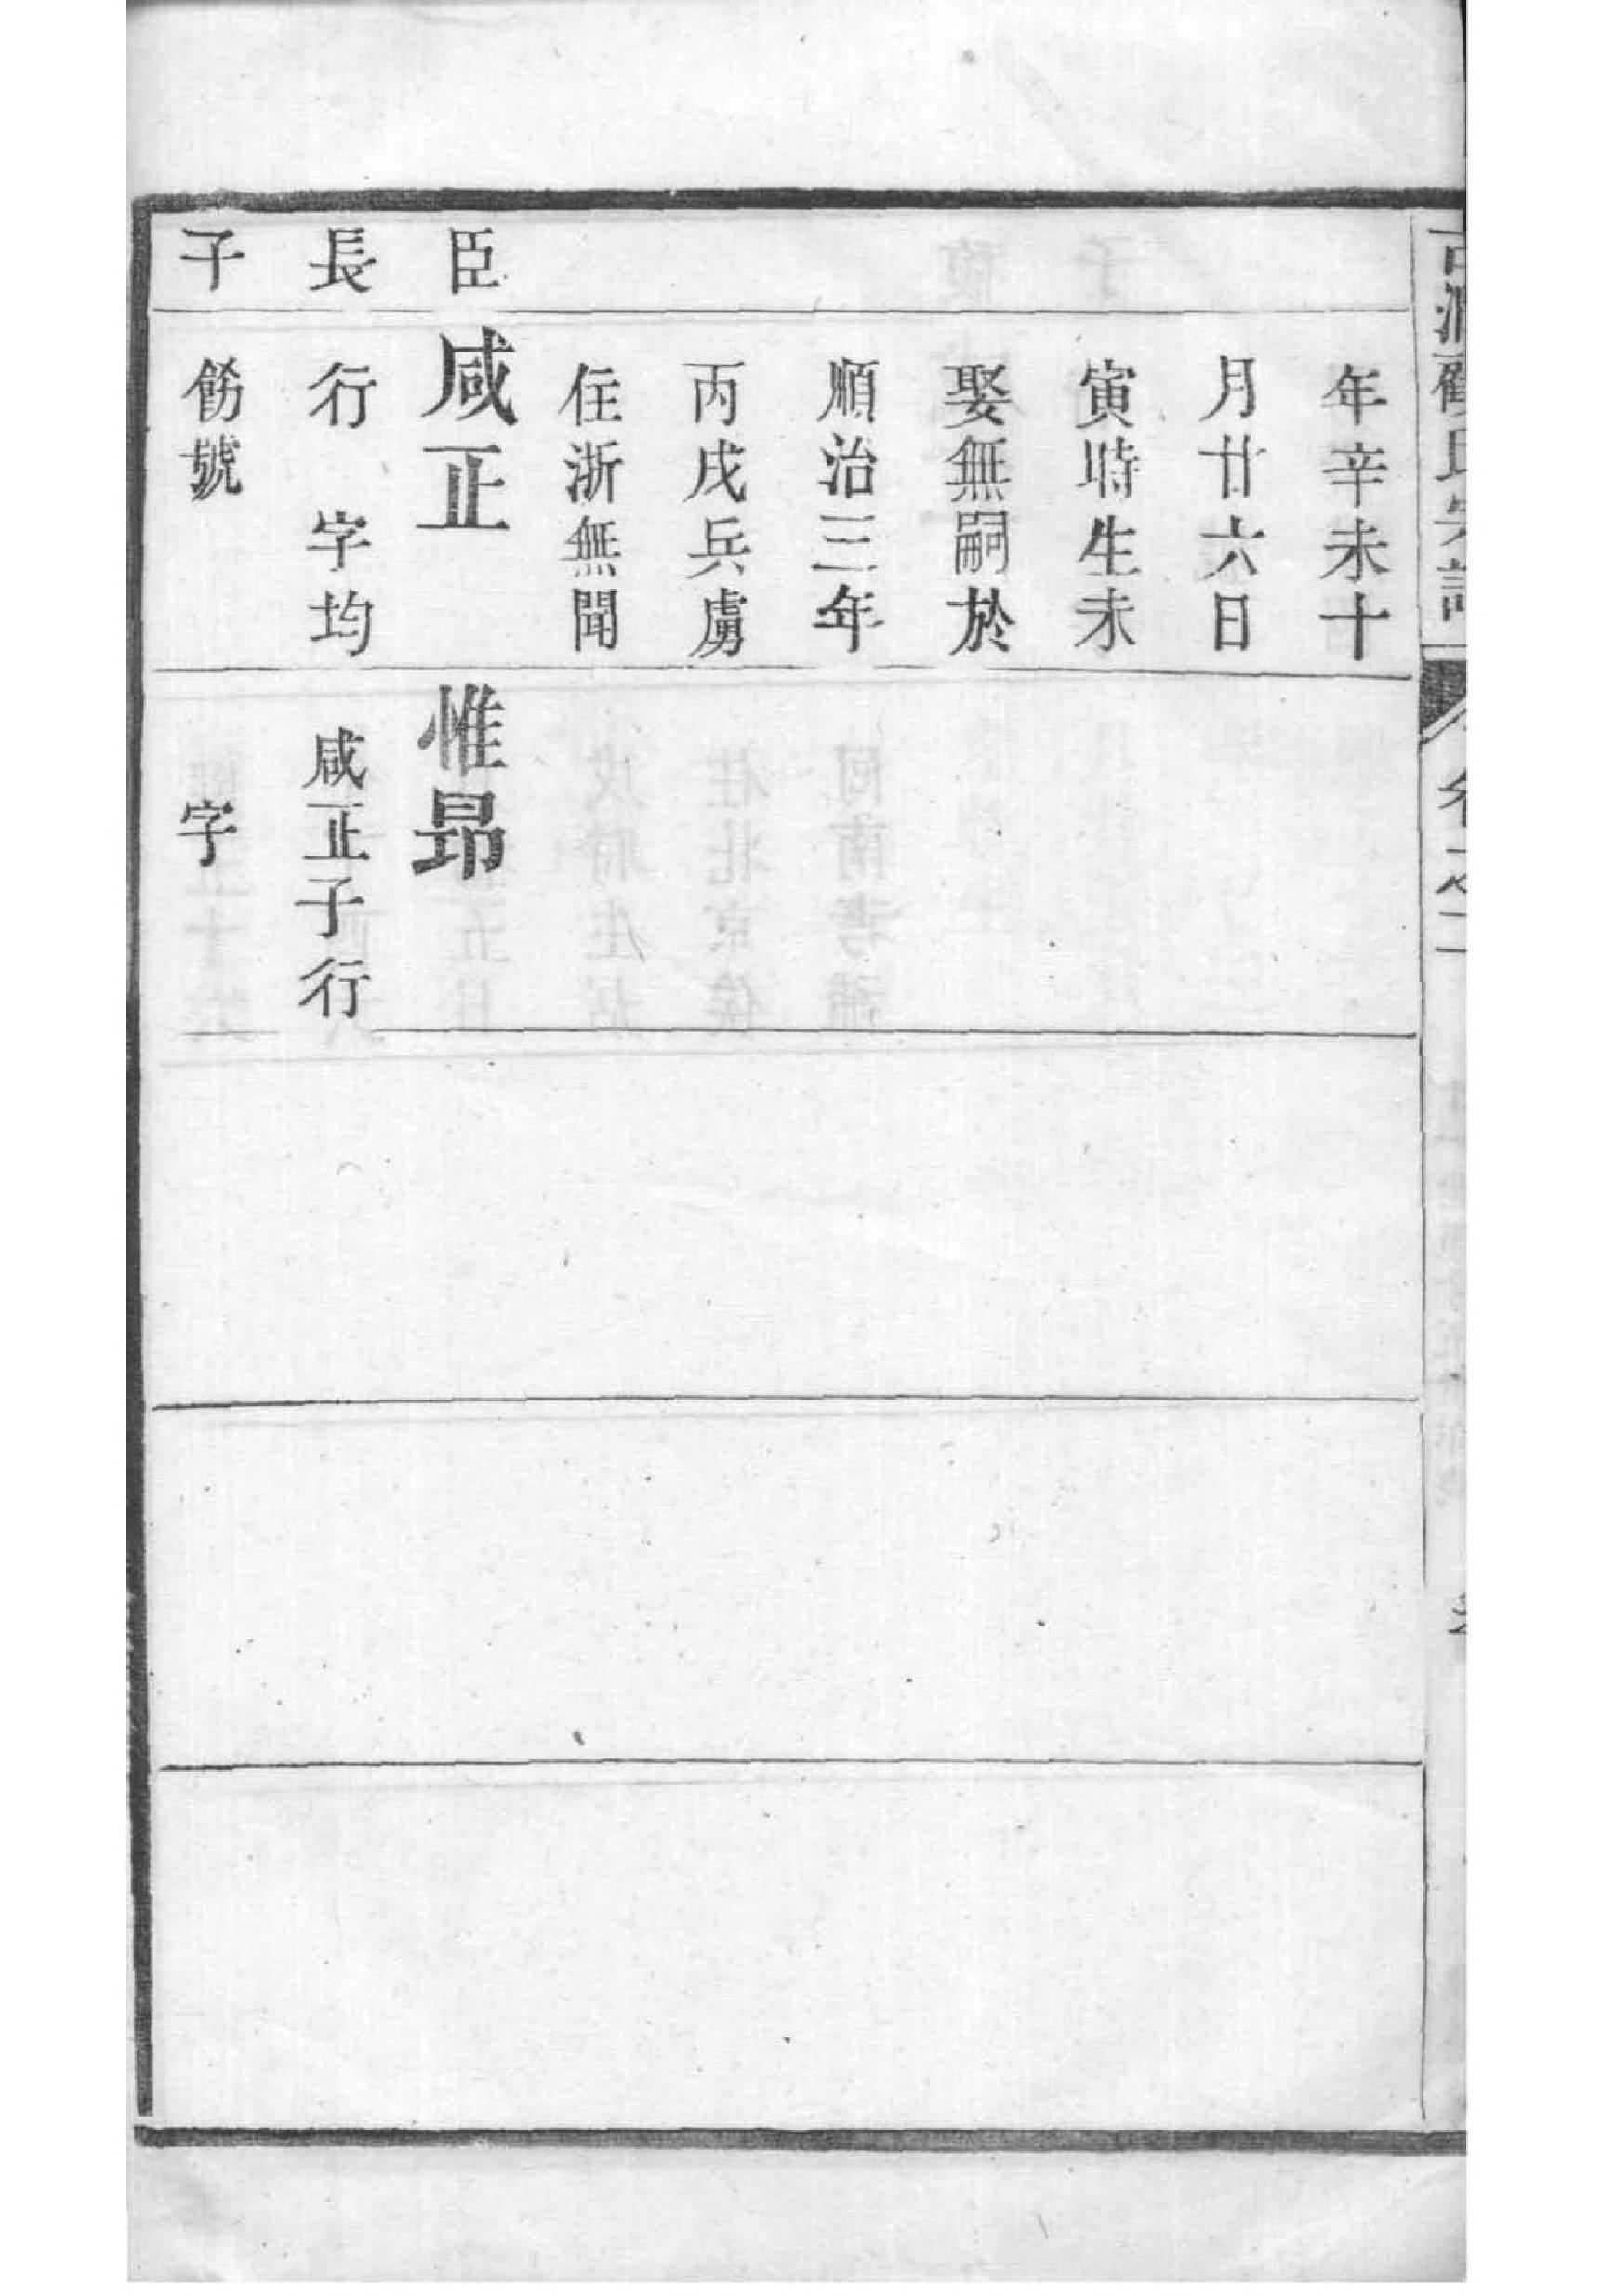 顧氏宗譜
卷之二
臣
長
子
年辛未十
月廿六日
寅時生未
娶無嗣於
順治三年
丙戌兵虜
住浙無聞
咸正
行　字均
飭號
惟昻
咸正子行
字